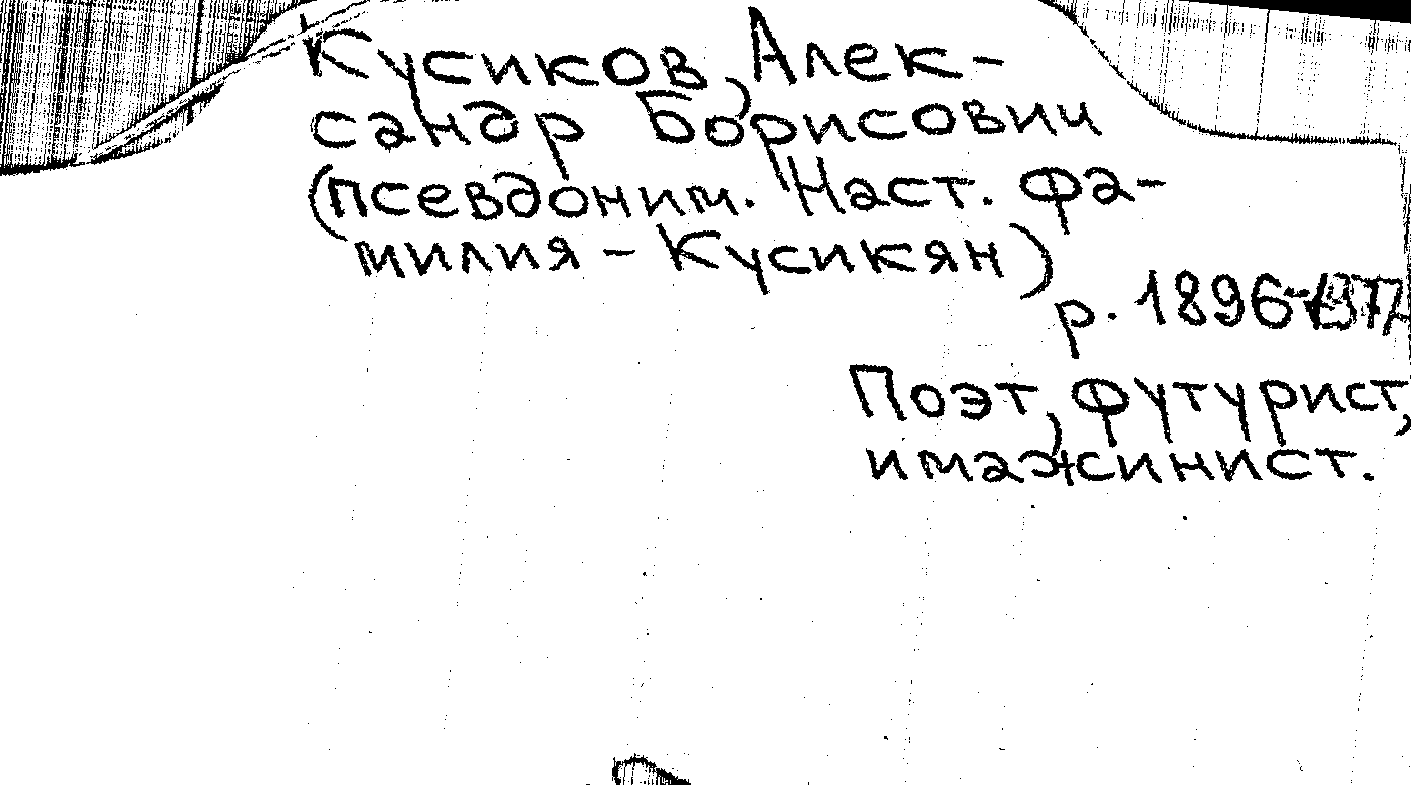 Кусиков, Алек-
сандр Борисович
(псевдоним. Наст. фа-
милия - Кусикян)
р. 1896
Поэт, футурист,
имажинист.